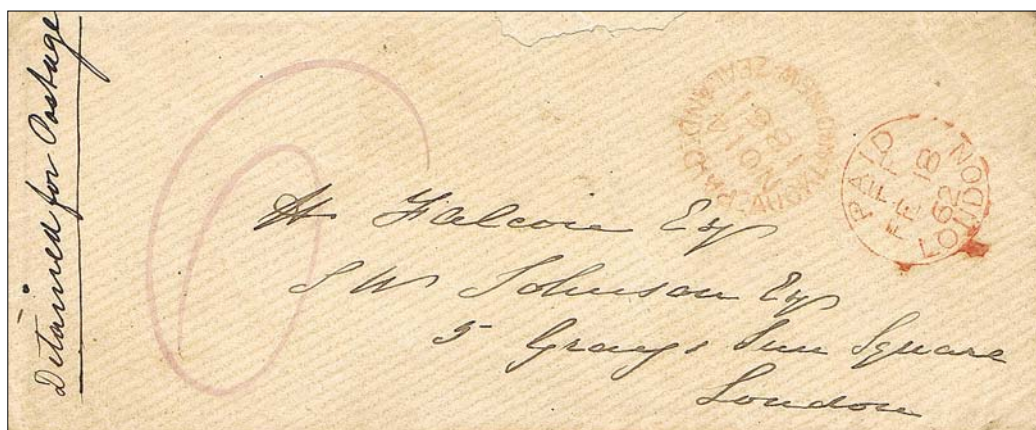 Detained for Postage
PAID
AUCKLAND NEW ZEALAND
1861
PAID
FE 18
62
LONDON
H Falcon Esq
S W Johnson Esq
5 Grays Inn Square
London